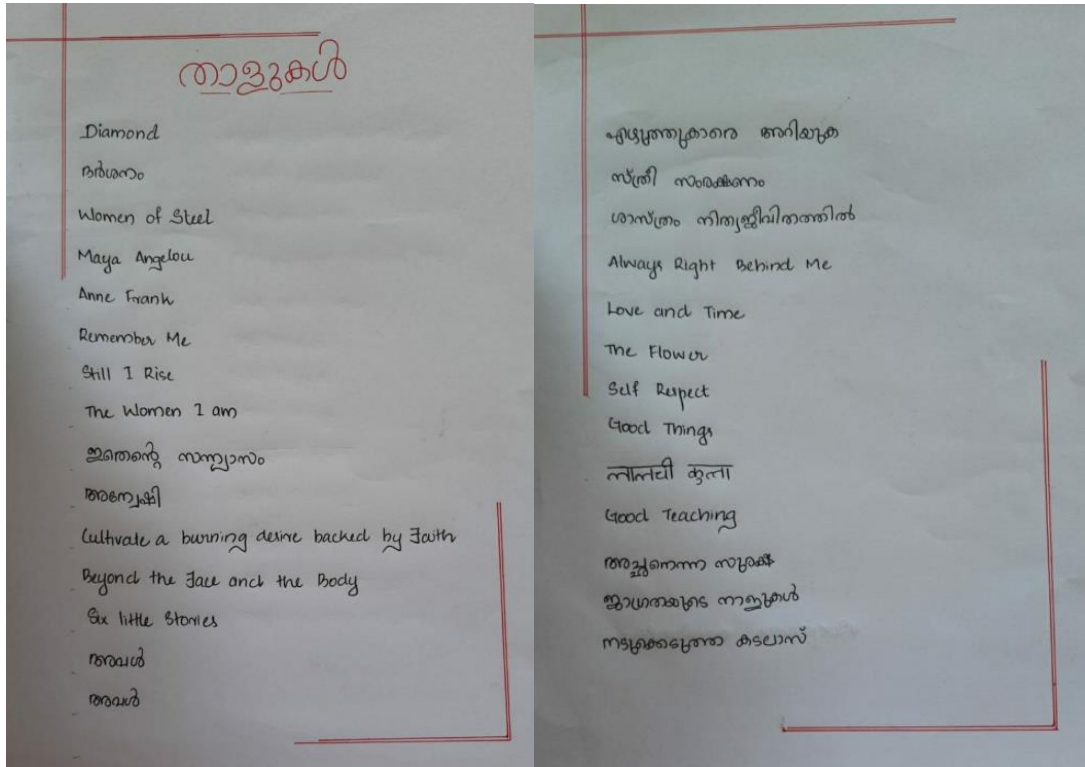 താളുകൾ
Diamond
ദർശനം
Women of Steel
Maya Angelou
Anne Frank
Remember Me
Still I Rise
The Women I am
ഇതെന്റെ സന്ന്യാസം
അന്വേഷി
Cultivate a burning desire backed by Faith
Beyond the Face and the Body
Six little Stories
അവൾ
അവൾ
എഴുത്തുകാരെ അറിയുക
സ്ത്രീ സംരക്ഷണം
ശാസ്ത്രം നിത്യജീവിതത്തിൽ
Always Right Behind Me
Love and Time
The Flower
Self Respect
Good Things
लालची कुत्ता
Good Teaching
അച്ഛനെന്ന സുരക്ഷ
ജാഗ്രതയുടെ നാളുകൾ
കടലാസ്